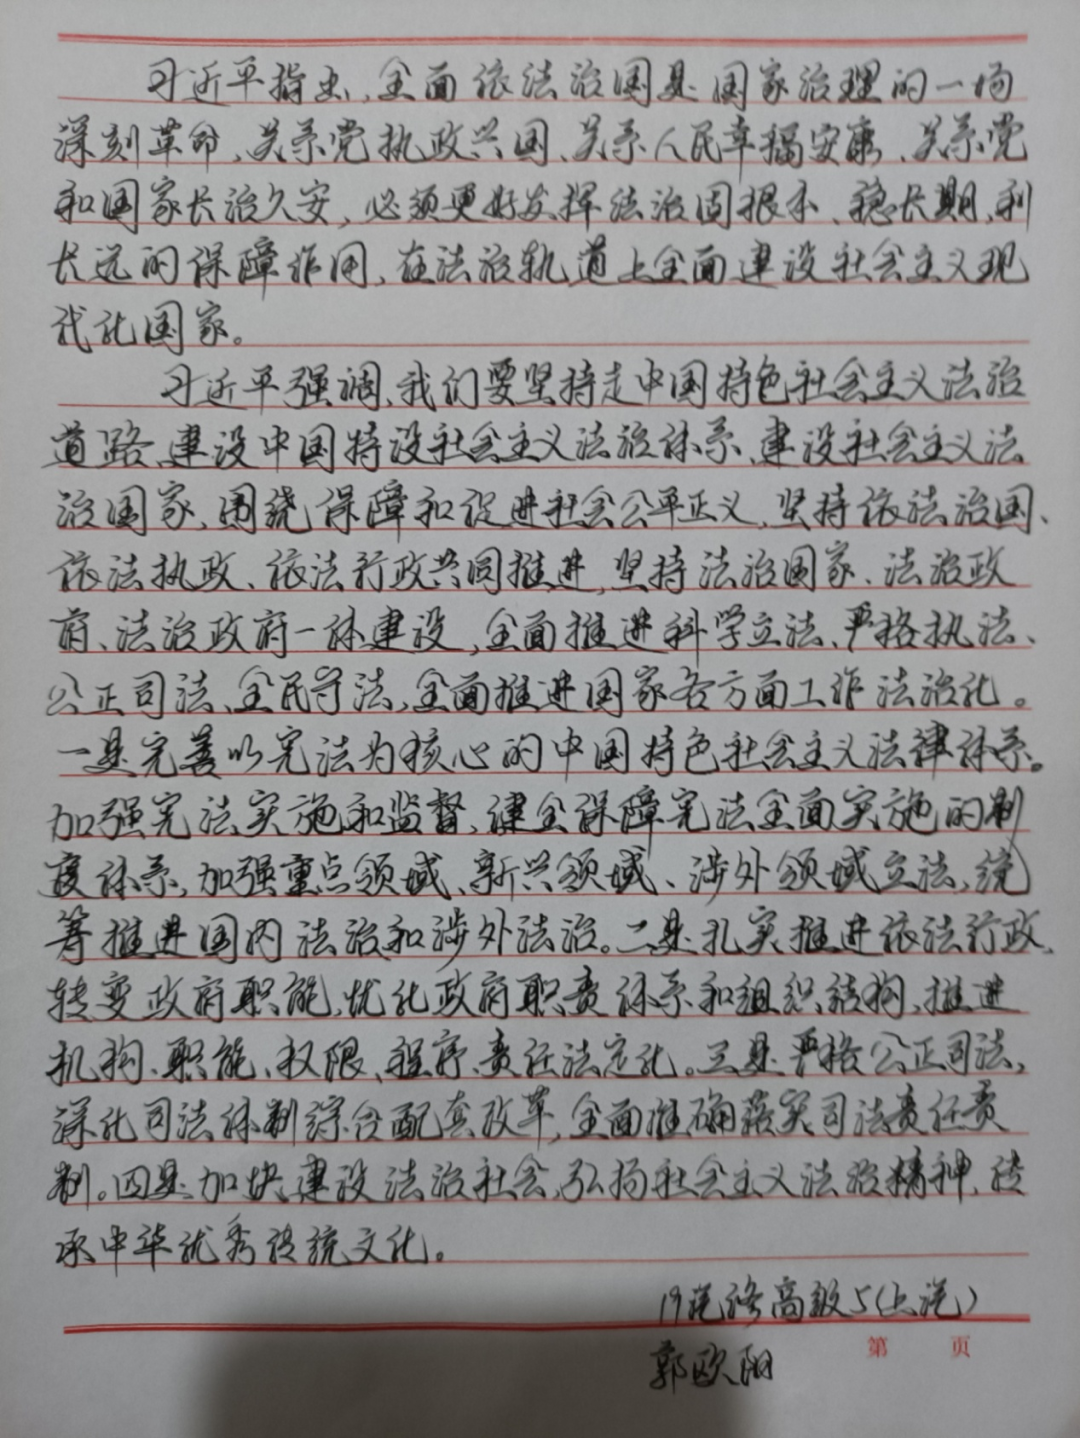 习近平指出,全面依法治国是国家治理的一场
深刻革命,关系党执政兴国、关系人民幸福安康、关系党
和国家长治久安,必须更好发挥法治固根本、稳长期、利
长远的保障作用,在法治轨道上全面建设社会主义现
代化国家。
习近平强调,我们要坚持走中国特色社会主义法治
道路、建设中国特设社会主义法治体系、建设社会主义法
治国家,围绕保障和促进社会公平正义,坚持依法治国、
依法执政、依法行政共同推进,坚持法治国家、法治政
府、法治政府一体建设,全面推进科学立法、严格执法、
公正司法、全民守法,全面推进国家各方面工作法治化。
一是完善以宪法为核心的中国特色社会主义法律体系。
加强宪法实施和监督,健全保障宪法全面实施的制
度体系,加强重点领域、新兴领域、涉外领域立法,统
筹推进国内法治和涉外法治。二是扎实推进依法行政,
转变政府职能,优化政府职责体系和组织结构,推进
机构、职能、权限、程序、责任法定化。三是严格公正司法,
深化司法体制综合配套改革,全面准确落实司法责任责
制。四是加快建设法治社会,弘扬社会主义法治精神,传
承中华优秀传统文化。
19汽修高级5(上汽)
郭欧阳
第 页